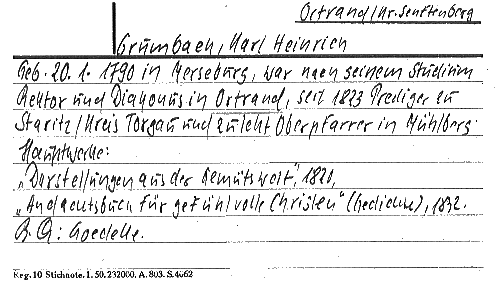 Ortrand/Kr. Senftenberg
Grumbach, Karl Heinrich
Geb. 20. 1. 1790 in Merseburg, war nach seinem Studium
Rektor und Diakonus in Ortrand, seit 1823 Prediger zu
Staritz/Kreis Torgau und zuletzt Oberpfarrer in Mühlberg.
Hauptwerke:
„Darstellungen aus der Gemütswelt“, 1820,
„Andachtsbuch für gefühlvolle Christen“ (Gedichte), 1832.
Goedeke.
Reg. 10 Stichnote. I. 50. 232000. A. 803. S. 4662